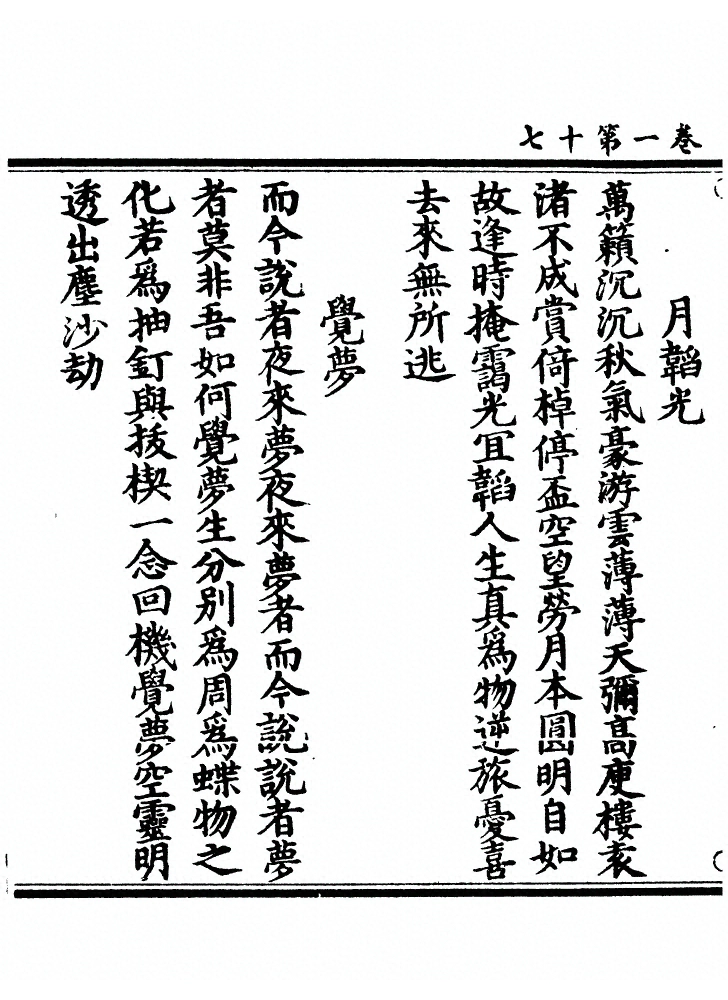 卷一第十七
月韜光
萬籟沉沉秋氣豪游雲薄薄天彌高庾樓袁
渚不成賞倚棹停盃空望勞月本圓明自如
故逢時掩靄光冝韜人生真爲物逆旅憂喜
去來無所逃
覺夢
而今說者夜來夢夜來夢者而今說說者夢
者莫非吾如何覺夢生分别爲周爲蝶物之
化若爲抽釘與拔楔一念回機覺夢空靈明
透出塵沙劫